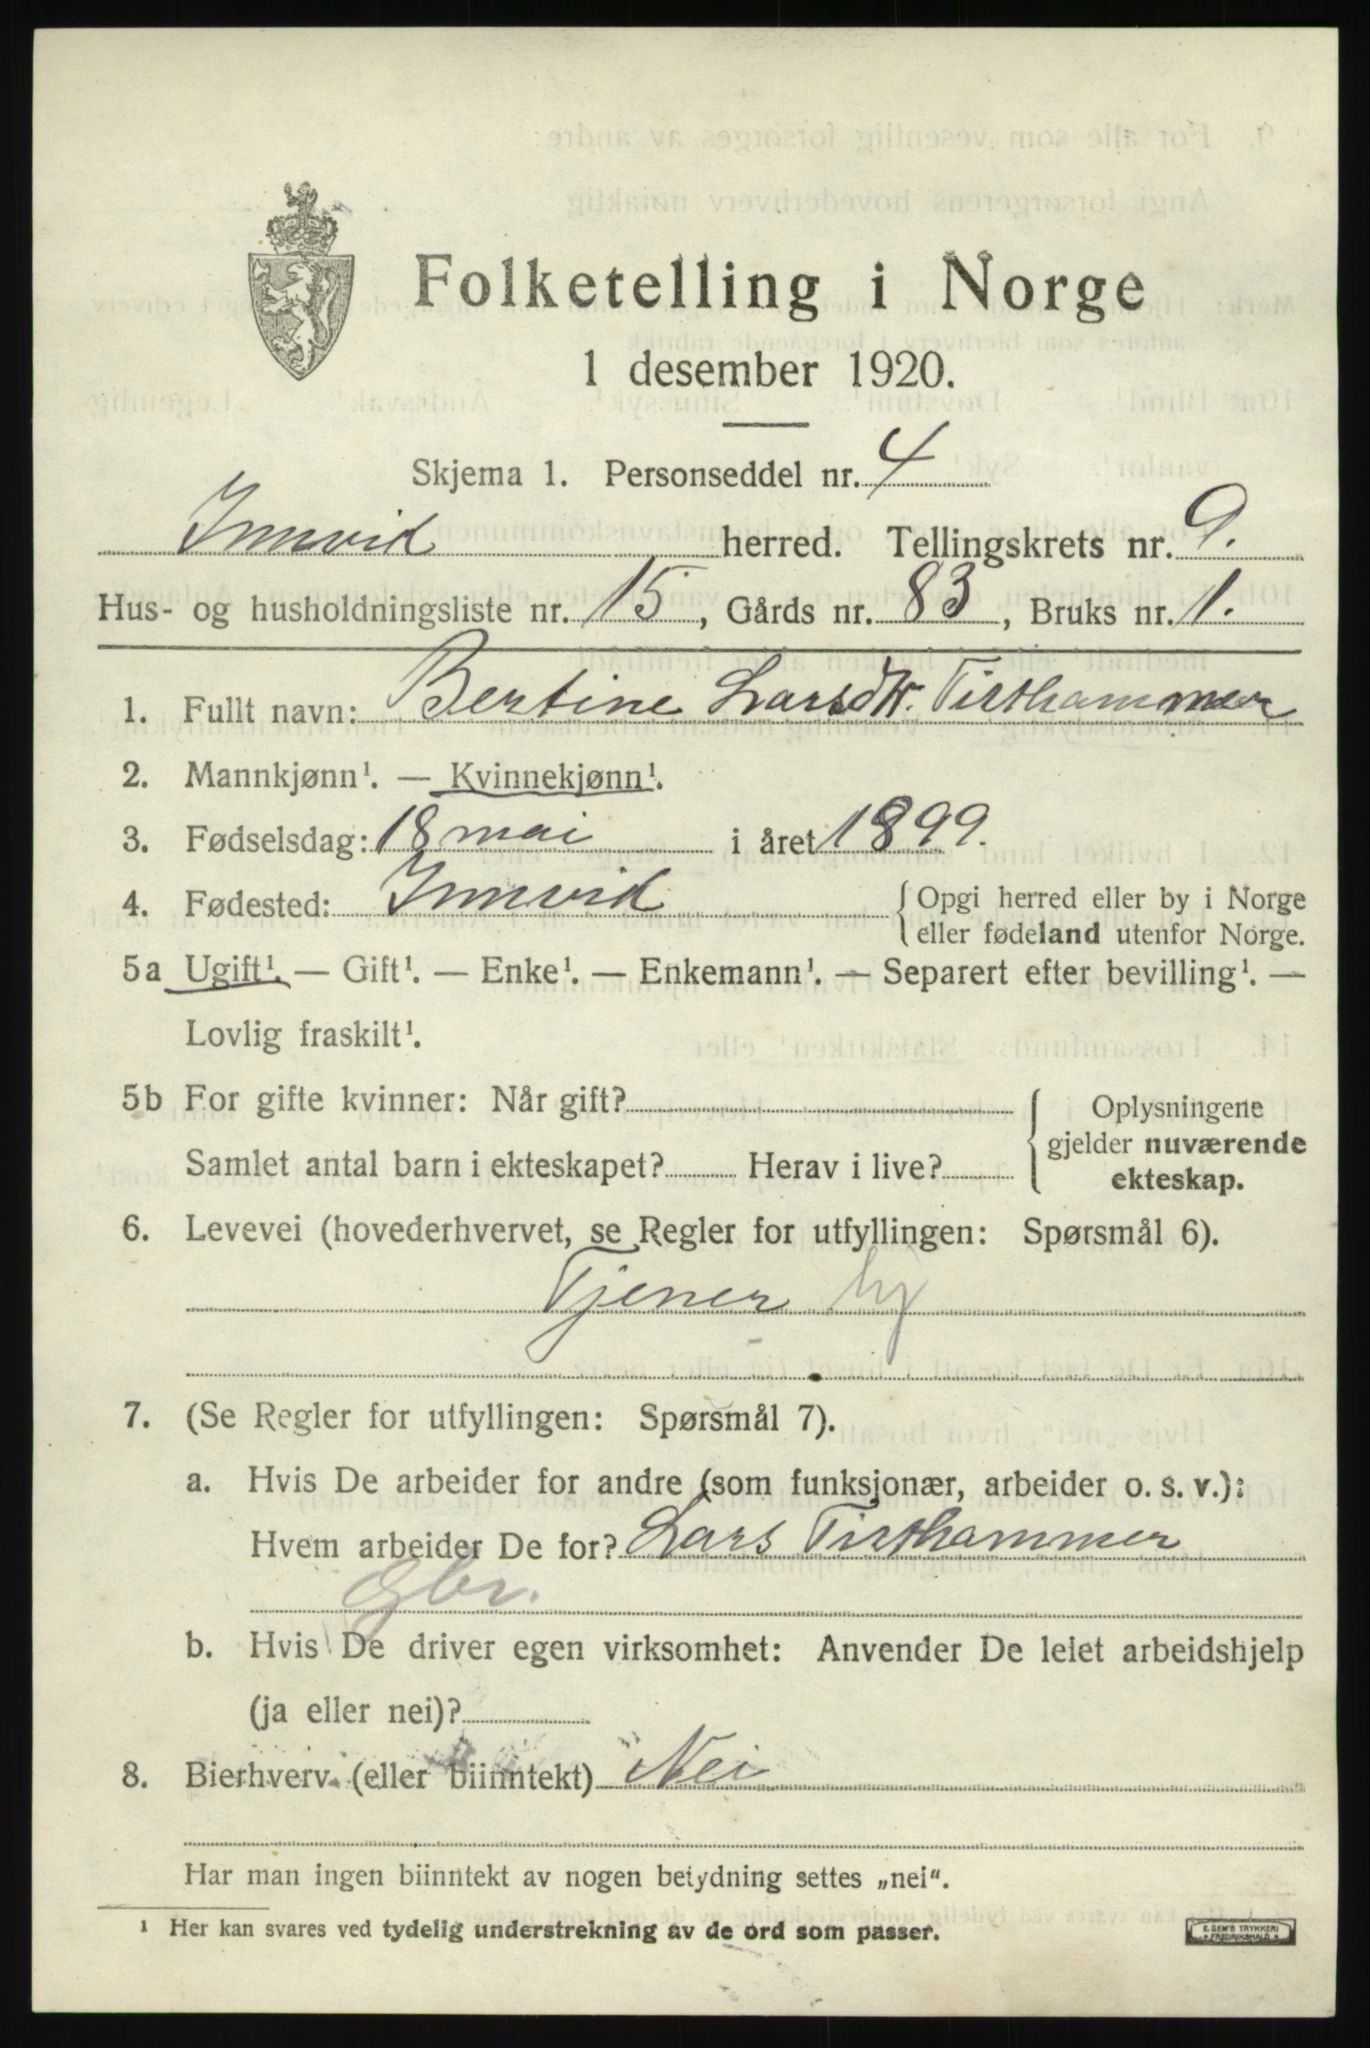 Folketelling i Norge
1 desember 1920.
Skjema 1. Personseddel nr. 4
Innvik herred. Tellingskrets nr. 9.
Hus- og husholdningsliste nr. 15, Gårds nr. 83, Bruks nr. 1.
1. Fullt navn: Bertine Larsdtr. Tisthammer
2. Mannkjønn¹. — Kvinnekjønn¹.
3. Fødselsdag: 18 mai i året 1899.
4. Fødested: Innvik { Opgi herred eller by i Norge
eller fødeland utenfor Norge.
5a Ugift¹. — Gift¹. — Enke¹. — Enkemann¹. — Separert efter bevilling¹. —
Lovlig fraskilt¹.
5b For gifte kvinner: Når gift? { Oplysningene
gjelder nuværende
Samlet antal barn i ekteskapet? Herav i live? ekteskap.
6. Levevei (hovederhvervet, se Regler for utfyllingen: Spørsmål 6).
Tjener hj
7. (Se Regler for utfyllingen: Spørsmål 7).
a. Hvis De arbeider for andre (som funksjonær, arbeider o. s. v.):
Hvem arbeider De for? Lars Tisthammer
Gbr.
b. Hvis De driver egen virksomhet: Anvender De leiet arbeidshjelp
(ja eller nei)?
8. Bierhverv (eller biinntekt) Nei
Har man ingen biinntekt av nogen betydning settes „nei“.
¹ Her kan svares ved tydelig understrekning av de ord som passer.
E. SEM'S TRYKKERI
FREDRIKSHALD